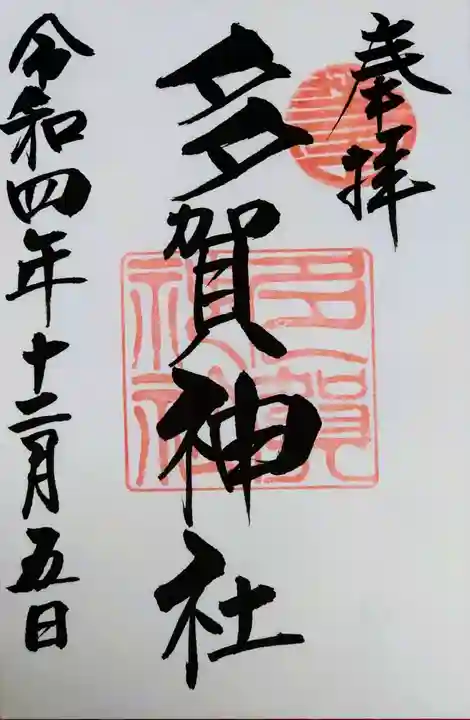 奉拝
多賀神社
令和四年十二月五日
多賀神社